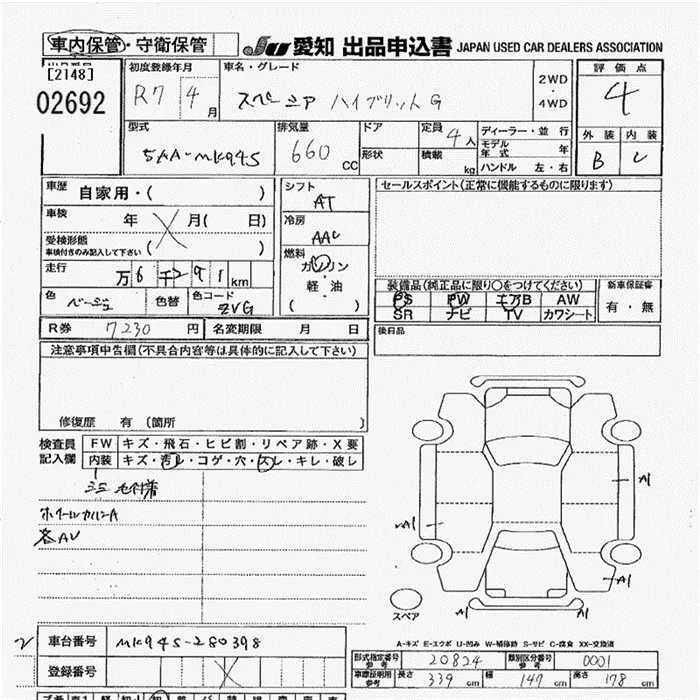 車内保管・守衛保管 JU 愛知 出品申込書 JAPAN USED CAR DEALERS ASSOCIATION
[2148]
02692
初度登録年月 R7 4月
車名・グレード スペーシア ハイブリットG
2WD・4WD
評価点 4
外装 内装
B
型式 5AA-MK94S
排気量 660 CC
ドア 形状
定員 4人 積載 kg
ディーラー・並行
モデル年式 年
ハンドル 左・右
車歴 自家用・( )
車検 年 月( 日)
受検形態 車検付きのみ記入して下さい ( )
走行 万6千291km
色 ベージュ 色替 色コード ZVG
R券 7230円 名変期限 月 日
シフト AT
冷房 AAC
燃料 ガソリン・軽・油 ( )
セールスポイント(正常に機能するものに限ります)
装備品(純正品に限り○をつけてください)
PS PW エアB AW
SR ナビ TV カワシート
新車保証書 有・無
後日品
注意事項申告欄(不具合内容等は具体的に記入して下さい)
修復歴 有 (箇所 )
検査員記入欄
FW キズ・飛石・ヒビ割・リペア跡・X要
内装 キズ・汚レ・コゲ・穴・スレ・キレ・破レ
ホイールカバーA
各AU
A1
A1
A1
A1
A1
スペア
A-キズ E-エクボ U-凹み W-補修跡 S-サビ C-腐食 XX-交換済
車台番号 MK94S-280398
登録番号
型式指定番号 参考 20824 類別区分番号 参考 0001
車庫証明用 参考 長さ 339 cm 幅 147 cm 高さ 178 cm